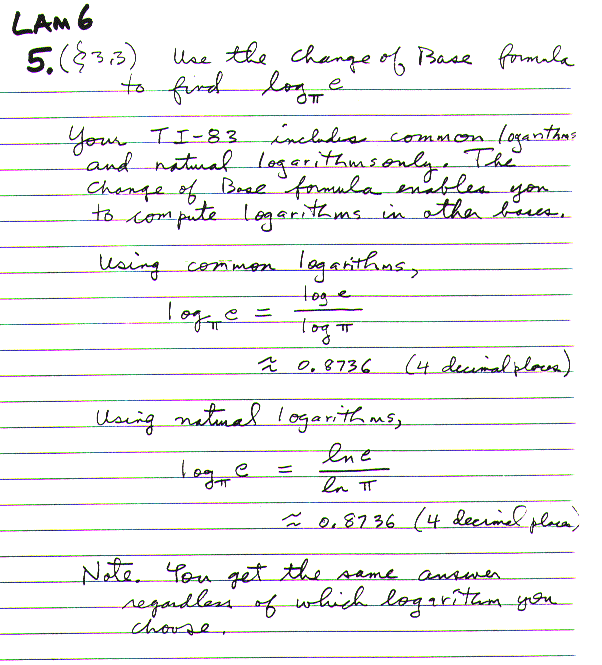 LAM 6
5. (§3.3) Use the change of Base formula
to find log_π e
Your TI-83 includes common logarithms
and natural logarithms only. The
change of Base formula enables you
to compute logarithms in other bases.
Using common logarithms,
log_π e = log e / log π
≈ 0.8736 (4 decimal places)
Using natural logarithms,
log_π e = ln e / ln π
≈ 0.8736 (4 decimal places)
Note. You get the same answer
regardless of which logarithm you
choose.